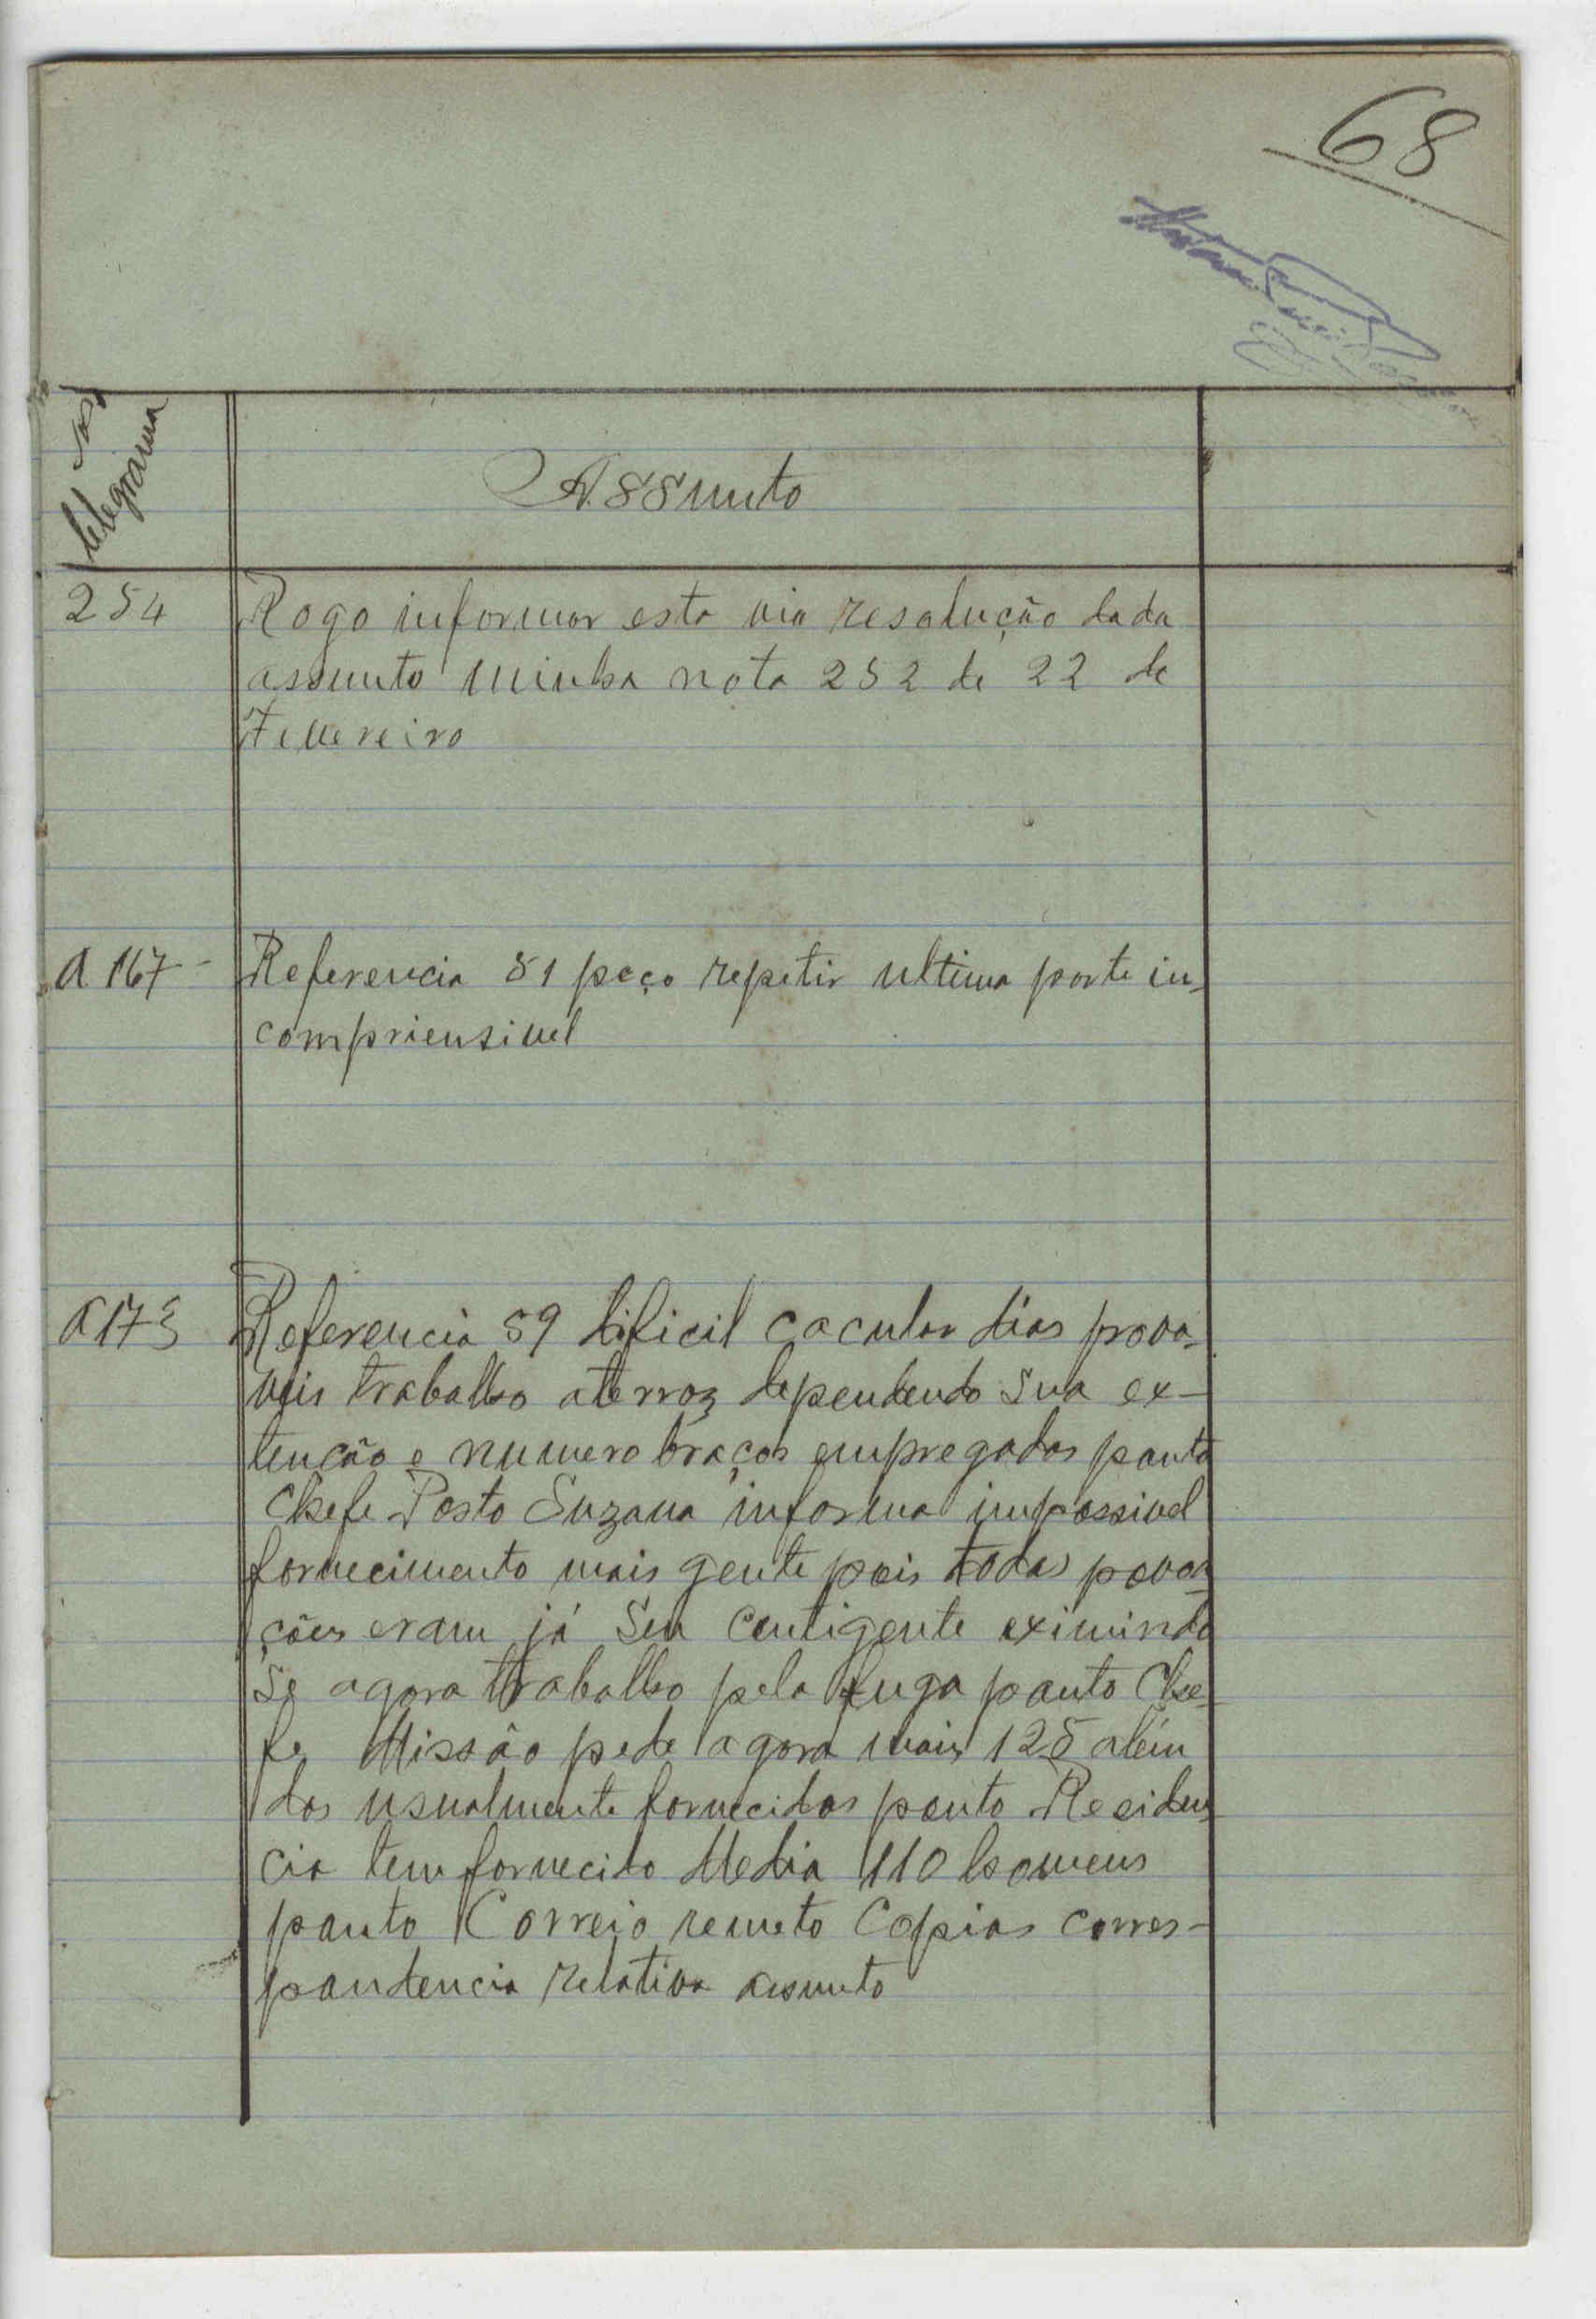 68
Nos
telegrama
Assunto
254 Rogo informar esta via resolução dada
assunto minha nota 252 de 22 de
Fevereiro
A 167 - Referencia 51 peço repetir ultima parte in-
compriensivel
A 173 Referencia 59 dificil cacular dias prova-
veis trabalho aterroz dependendo sua ex-
tenção e numero braços empregados ponto
Chefe Posto Suzana informa impossivel
fornecimento mais gente pois todas povoa-
ções eram já seu contigente eximindo
se agora trabalho pela fuga ponto Che-
fe Missão pede agora mais 125 além
dos usualmente fornecidos ponto Residen-
cia tem fornecido Media 110 homens
ponto Correio remeto Copias corres-
pondencia relativa assunto